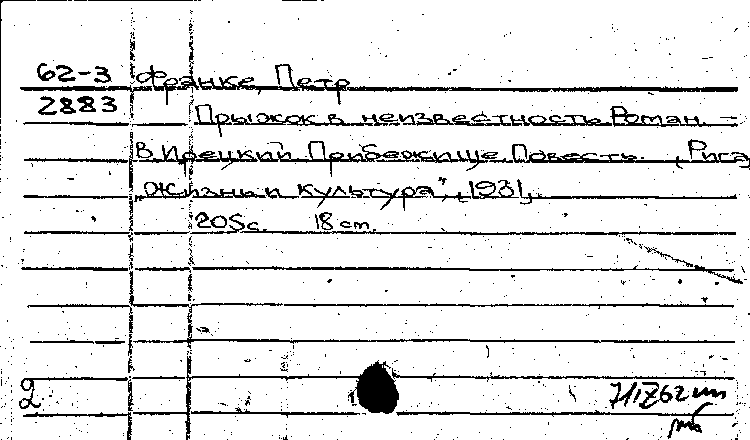 62-3 Франке, Петр
2883 Прыжок в неизвестность. Роман. –
В. Ирецкий. Прибежище. Повесть. , Рига,
„Жизнь и культура", 1931,.
205с. 18 cm.
2